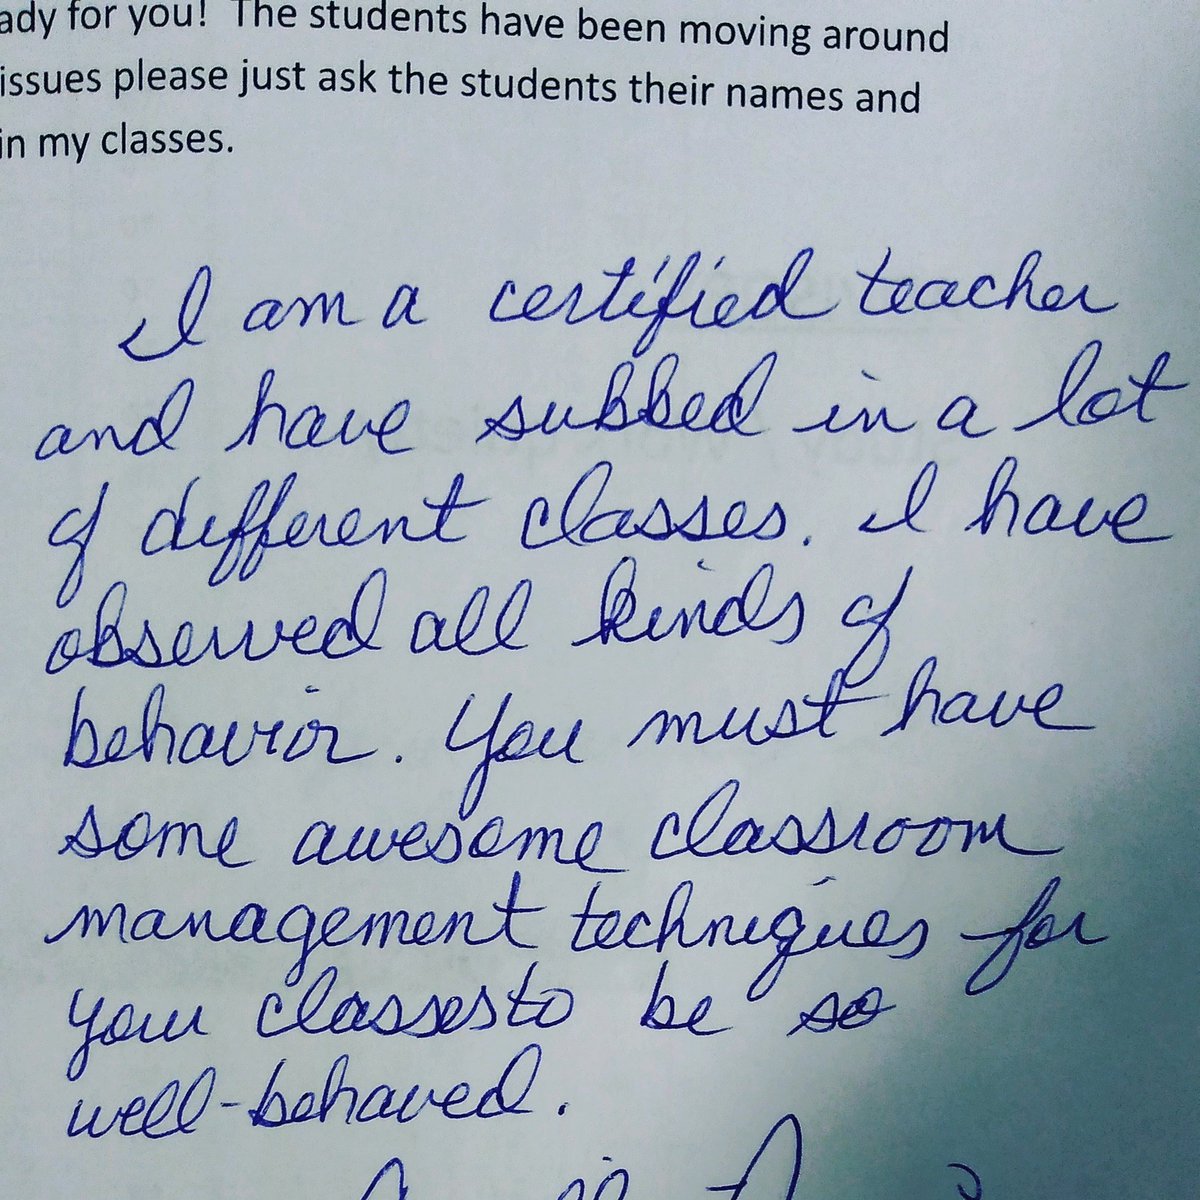 ady for you! The students have been moving around
issues please just ask the students their names and
in my classes.
I am a certified teacher
and have subbed in a lot
of different classes. I have
observed all kinds of
behavior. You must have
some awesome classroom
management techniques for
your classes to be so
well-behaved.